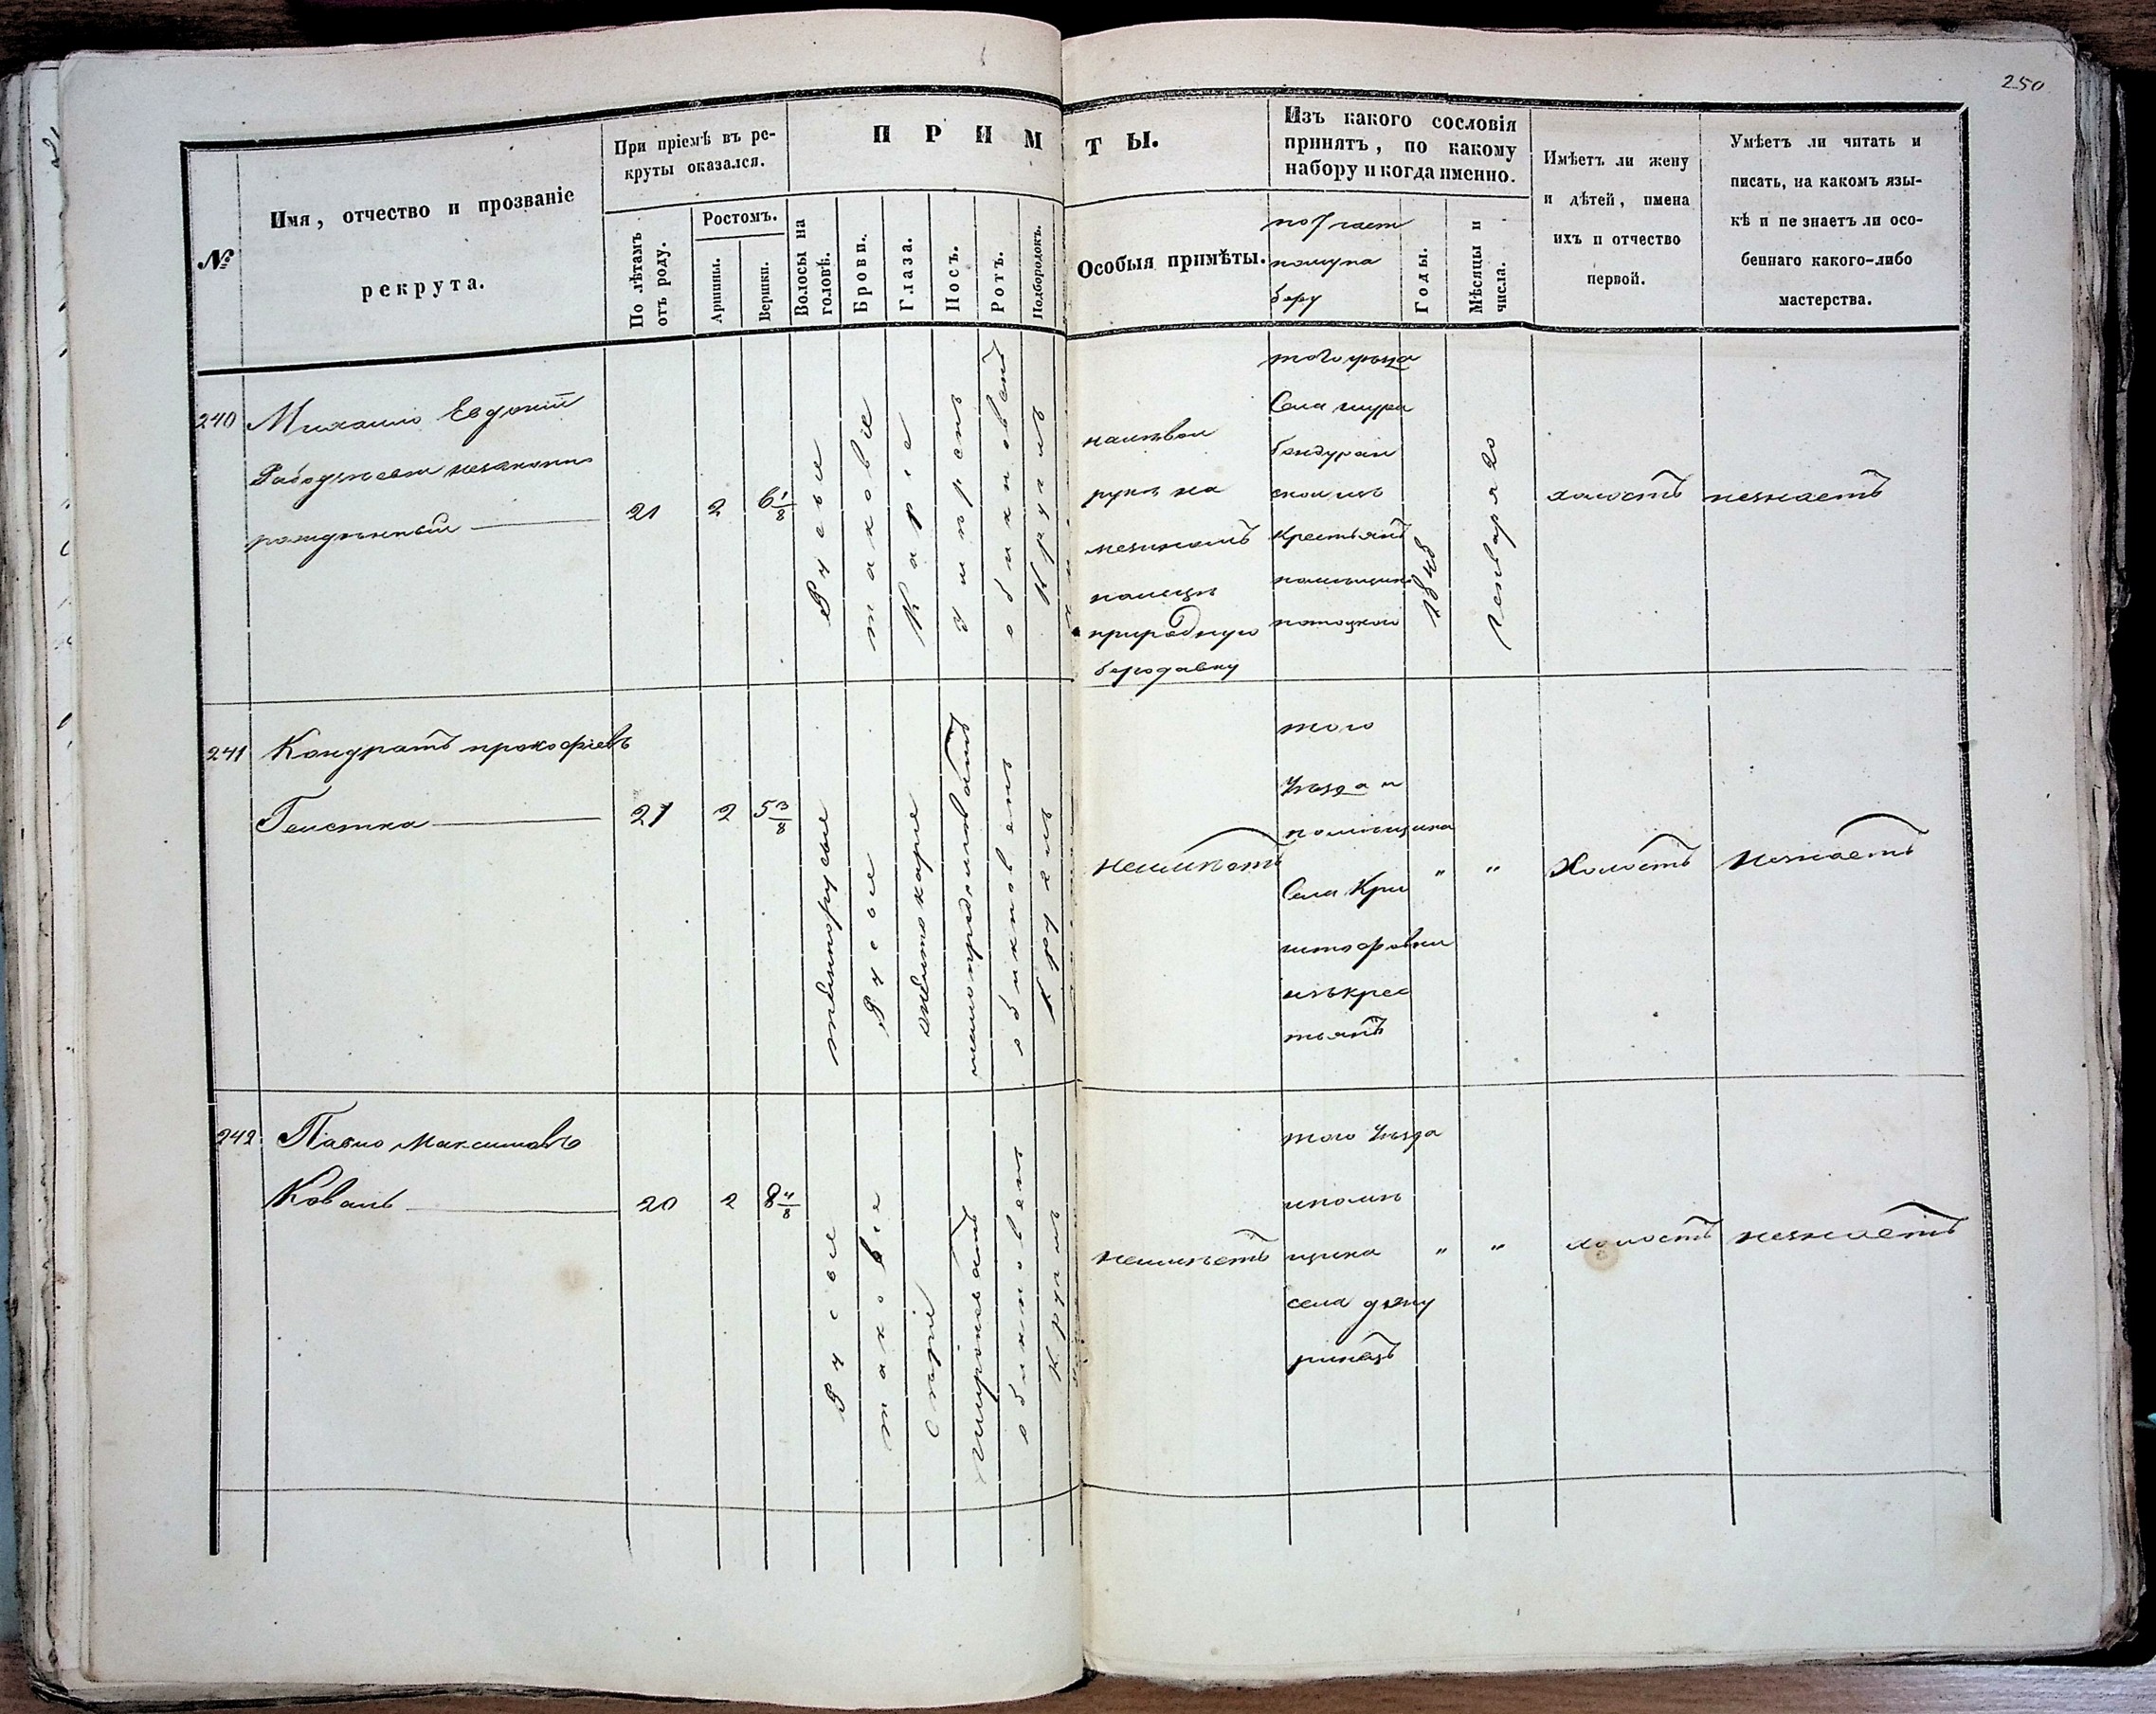 250
№
Имя, отчество и прозваніе
рекрута.
При пріемѣ въ ре-
круты оказался.
По лѣтамъ
отъ роду.
Ростомъ.
Аршины.
Вершки.
ПРИМѢТЫ.
Волосы на
головѣ.
Брови.
Глаза.
Носъ.
Ротъ.
Подбородокъ.
Особыя примѣты.
Изъ какого сословія
принятъ, по какому
набору и когда именно.
по 7 част
Годы.
Мѣсяцы и
числа.
Имѣетъ ли жену
и дѣтей, имена
ихъ и отчество
первой.
Умѣетъ ли читать и
писать, на какомъ язы-
кѣ и не знаетъ ли осо-
беннаго какого-либо
мастерства.
240
Михаило Евдокій
незаконно
рожденный
21
2
6 1/8
Русые
таковіе
Каріе
обикновен
Круглъ
налѣвой
рукѣ на
мезиномъ
пальцѣ
природную
бородавку
того уѣзда
Села
скои изъ
Крестьянъ
помѣщика
потоцкого
1848
Генваря 20
холостъ
незнаетъ
241
Кондратъ прокофіевъ
21
2
5 3/8
Русые
обикновенъ
Круглъ
неимѣетъ
того
Уѣзда и
помѣщика
Села Кри
штофовки
изъ крес
тьянъ
"
"
Холостъ
Незнаетъ
242
Павло Максимовъ
Коваль
20
2
8 4/8
Русые
таковіе
Сѣріе
широковатъ
обикновен
Круглъ
неимѣетъ
того Уѣзда
ипомѣ
щика
села
"
"
холостъ
незнаетъ